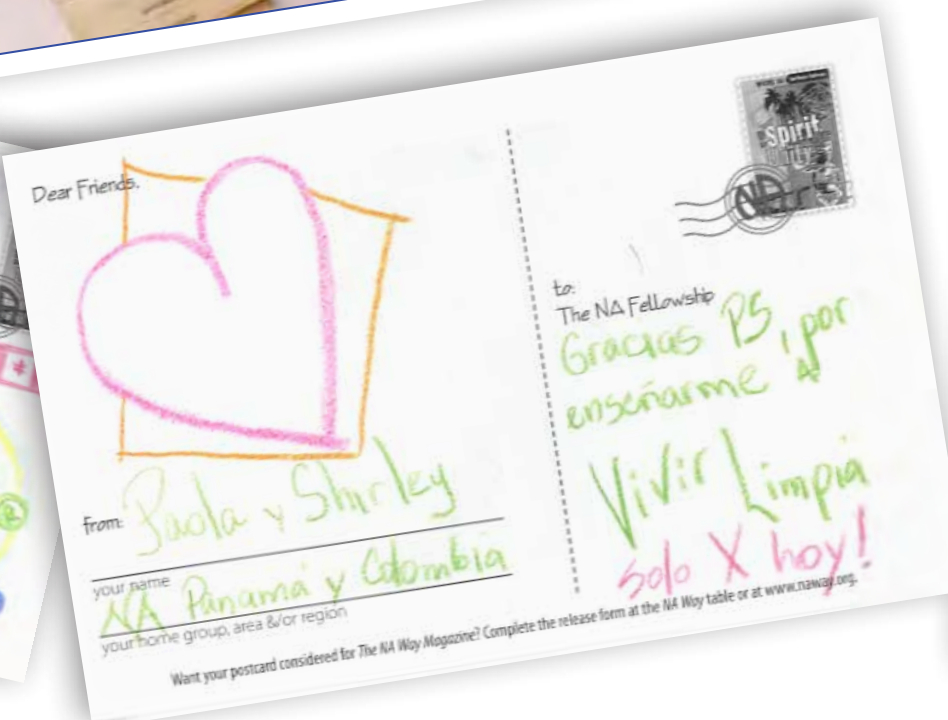 Dear Friends,
from: Paola y Shirley
your name
NA Panamá y Colombia
your home group, area &/or region
Spirit
NA
to:
The NA Fellowship
Gracias PS, por
enseñarme A
Vivir Limpia
solo X hoy!
Want your postcard considered for The NA Way Magazine? Complete the release form at the NA Way table or at www.naway.org.